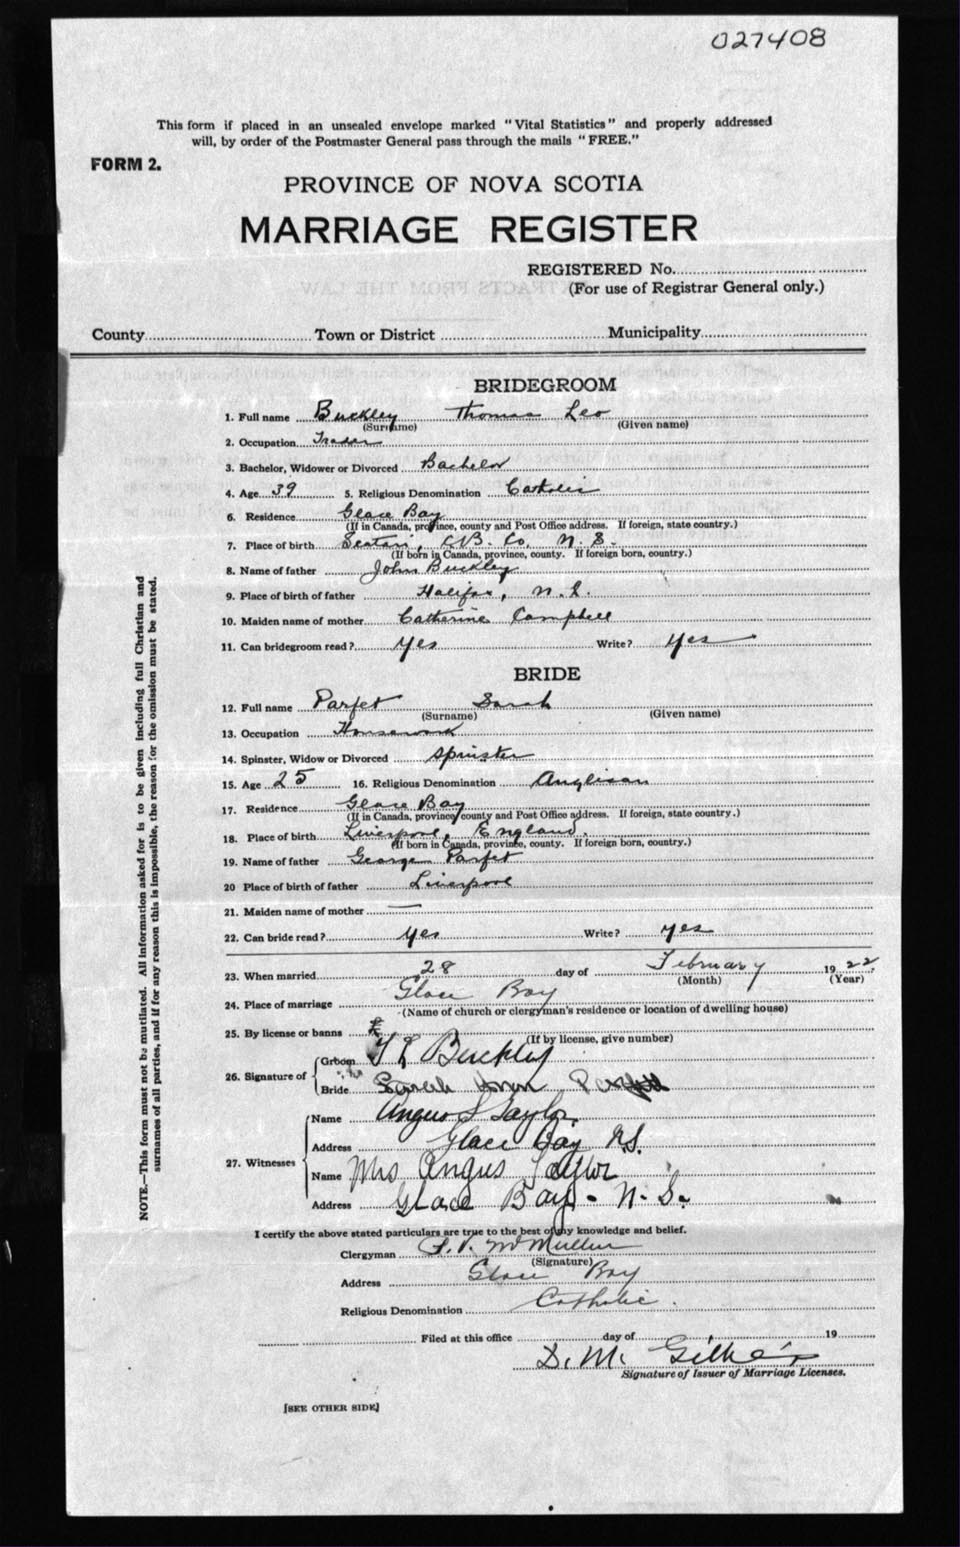 027408
This form if placed in an unsealed envelope marked "Vital Statistics" and properly addressed
will, by order of the Postmaster General pass through the mails "FREE."
FORM 2.
PROVINCE OF NOVA SCOTIA
MARRIAGE REGISTER
REGISTERED No.
(For use of Registrar General only.)
County Town or District Municipality
BRIDEGROOM
1. Full name Buckley Thomas Leo
(Surname) (Given name)
2. Occupation Trader
3. Bachelor, Widower or Divorced Bachelor
4. Age 39 5. Religious Denomination Catholic
6. Residence Glace Bay
(If in Canada, province, county and Post Office address. If foreign, state country.)
7. Place of birth Scatari, C.B. Co. N. S.
(If born in Canada, province, county. If foreign born, country.)
8. Name of father John Buckley
9. Place of birth of father Halifax, N. S.
10. Maiden name of mother Catherine Campbell
11. Can bridegroom read? Yes Write? Yes
BRIDE
12. Full name Parfet Sarah
(Surname) (Given name)
13. Occupation Housework
14. Spinster, Widow or Divorced Spinster
15. Age 25 16. Religious Denomination Anglican
17. Residence Glace Bay
(If in Canada, province, county and Post Office address. If foreign, state country.)
18. Place of birth Liverpool, England.
(If born in Canada, province, county. If foreign born, country.)
19. Name of father George Parfet
20 Place of birth of father Liverpool
21. Maiden name of mother —
22. Can bride read? Yes Write? Yes
23. When married 28 day of February 1922.
(Month) (Year)
24. Place of marriage Glace Bay
(Name of church or clergyman's residence or location of dwelling house)
25. By license or banns
(If by license, give number)
26. Signature of
Groom T L Buckley
Bride Sarah
27. Witnesses
Name Angus S Taylor
Address Glace Bay N.S.
Name Mrs Angus Taylor
Address Glace Bay - N. S.
I certify the above stated particulars are true to the best of my knowledge and belief.
Clergyman McMullin
(Signature)
Address Glace Bay
Religious Denomination Catholic.
Filed at this office day of 19
D. M.
Signature of Issuer of Marriage Licenses.
[SEE OTHER SIDE]
NOTE.—This form must not be mutilated. All information asked for is to be given including full Christian and
surnames of all parties, and if for any reason this is impossible, the reason for the omission must be stated.